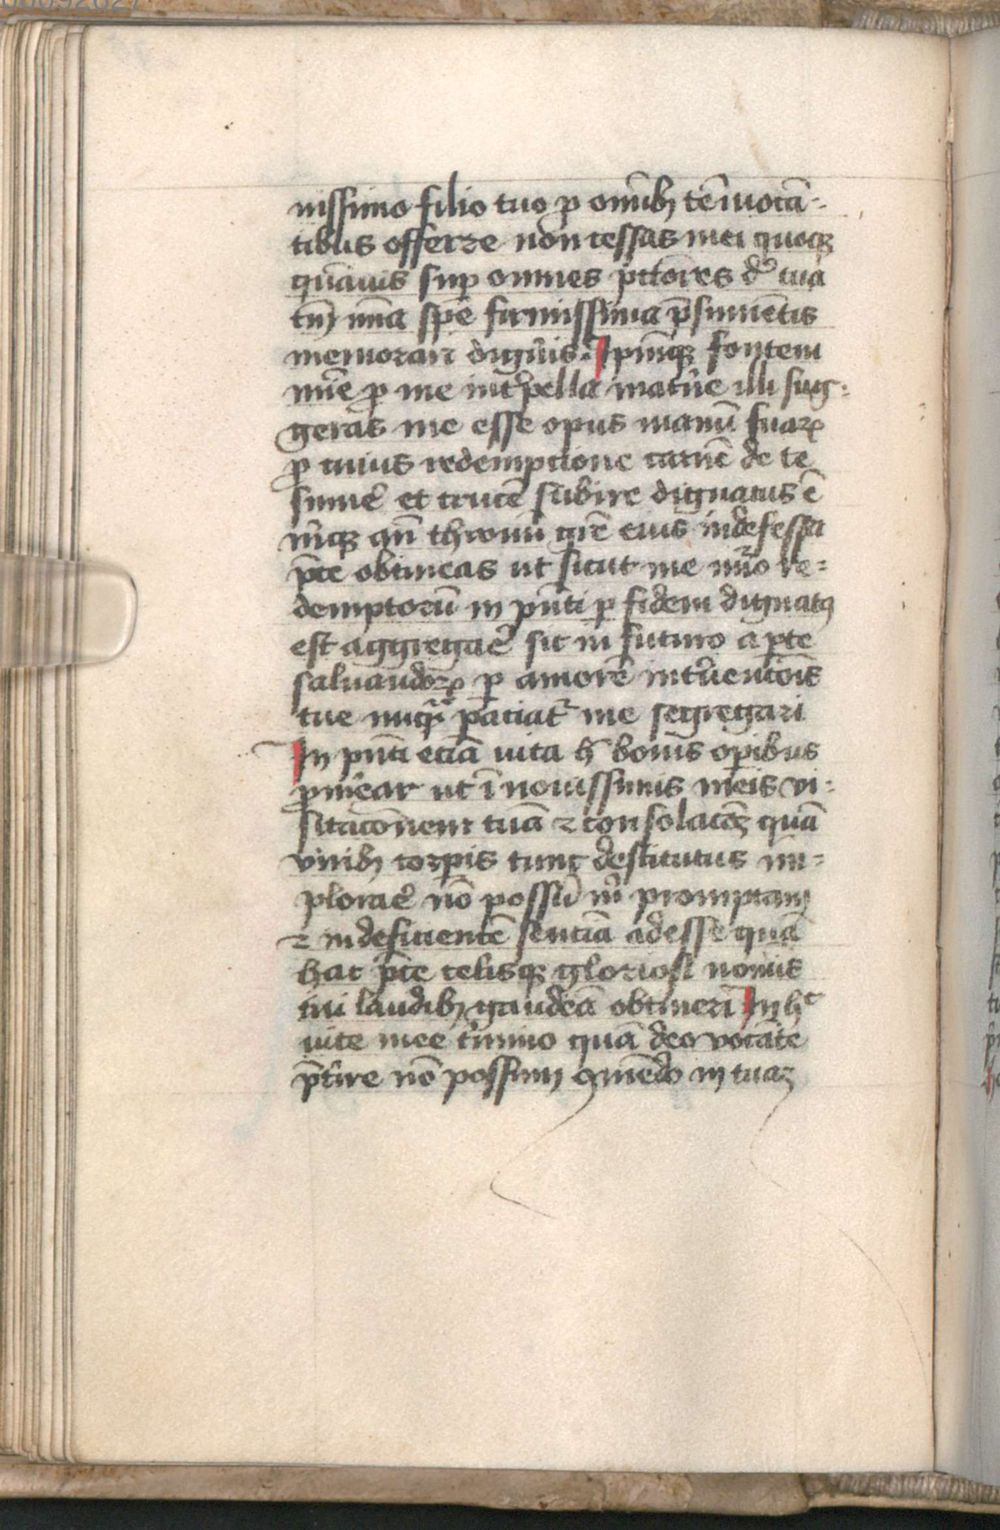 nissimo filio tuo ꝓ om̄ibꝫ te īuocā-
tibus offerre non cessas mei quoqꝫ
quāuis suꝑ omnes pctōres d̓ tua
tn̄ miīa spē firmissima p̄sumētis
memorari digneris. Ipm̄qꝫ fontem
mīe ꝓ me int̓pella mat̓ne illi sug-
geras me esse opus manuū suaꝝ
ꝓ cuius redempcione carnē de te
sumē et crucē subire dignatus ē
thronū gr̄e eius indefessa
p̄ce obtineas ut sicut me nūo re-
demptorū in pn̄ti ꝑ fidem dignatꝰ
est aggregar̄ sic in futuro a ꝑte
saluandoꝝ ꝑ amorē int̓uentōis
tue nūqͣ patiat᷑ me segregari
In pn̄ti eciā uita h̄ bonis oꝑibus
ꝓm̓ear ut ī nouissimis meis vi-
sitacōnem tuā ⁊ consolacōeꝫ quā
viribꝫ corꝑis tunc destitutus im-
plorar̄ nō possū m̓ promptam
⁊ indeficientē senciā adesse quā
hac p̄ce celisqꝫ gloriosi nomīs
tui laudibꝫ gaudeā obtineri In hͨ
uite mee t̓mino quā deo vocāte
p̄t̓ire nō possum ꝯmēdo in tuaꝫ